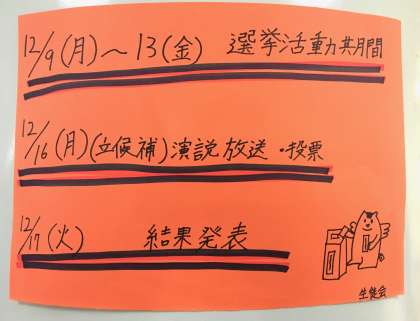 12/9(月)～13(金) 選挙活動期間
12/16(月)(立候補)演説放送・投票
12/17(火) 結果発表
生徒会